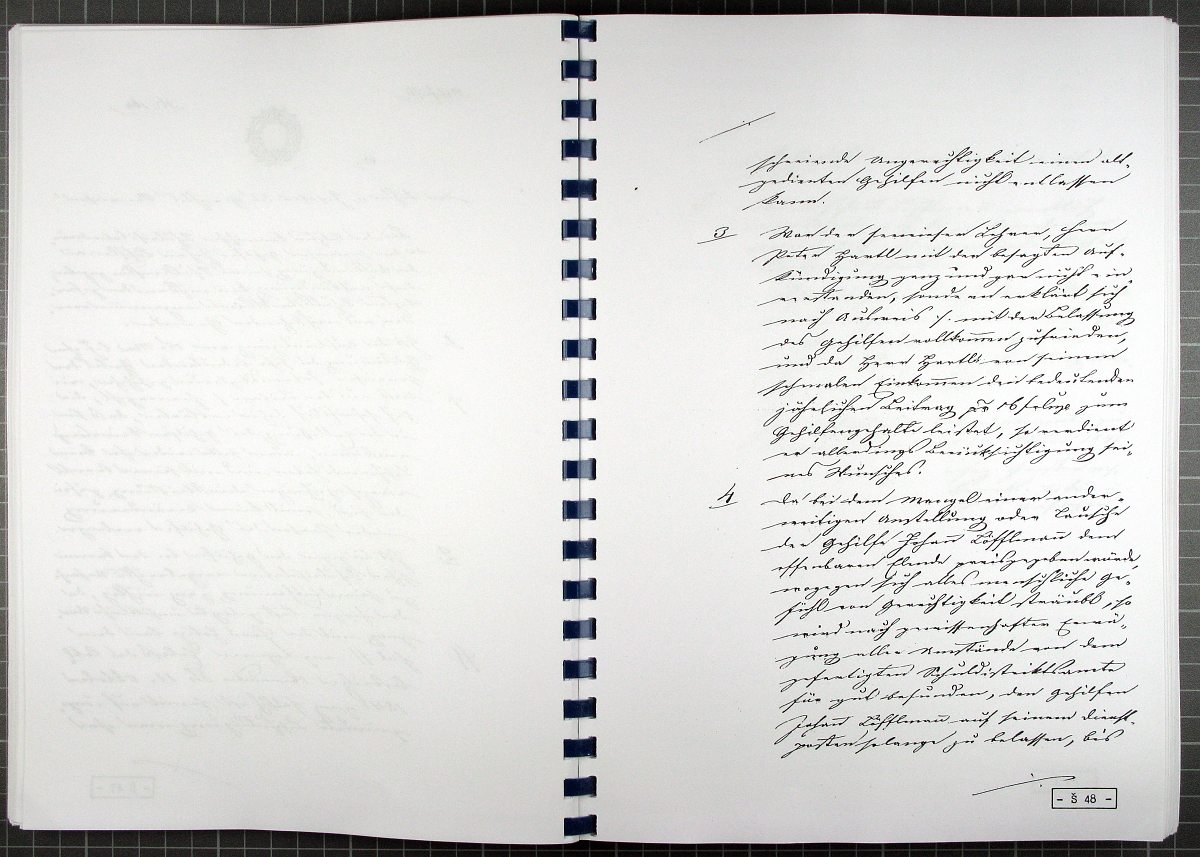 schreiende Ungerechtigkeit einen alt-
gedienten Gehilfen nicht entlassen
kann.
3 War der Lehrer, Herr
Peter Hartl mit der besagten Auf-
kündigung ganz und gar nicht ein
verstanden, sondern erklärt sich
nach Ausweis ·/. mit der Belassung
des Gehilfen vollkommen zufrieden,
und da Herr Hartl von seinem
schmalen Einkommen den bedeutenden
jährlichen Beitrag pr zum
Gehilfengehalte leistet, so verdient
er allerdings Berücksichtigung sei-
nes Wunsches.
4 Da bei dem Mangel einer ander-
weitigen Anstellung oder Tausche
der Gehilfe Johann Löfflmann dem
offenbaren Elende preisgegeben würde,
wogegen sich alles menschliche Ge-
fühl von Gerechtigkeit sträubt, so
wird nach gewissenhafter Erwä-
gung aller Umstände von dem
gefertigten Schuldistriktsamte
für gut befunden, den Gehilfen
Johann Löfflmann auf seinem Dienst-
posten solange zu belassen, bis
- Š 48 -